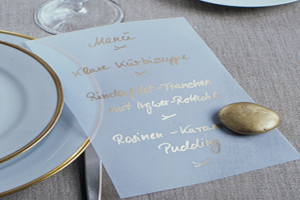 Menü
Klare Kürbissuppe
Rinderfilet-Tranchen
mit Ingwer-Rotkohl
Rosinen-
Pudding